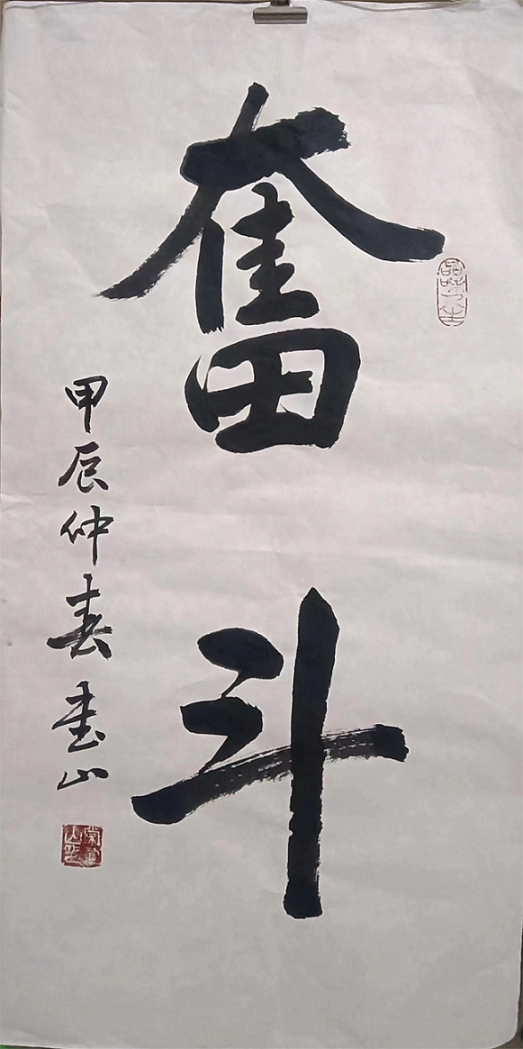 奮斗
甲辰仲春書山